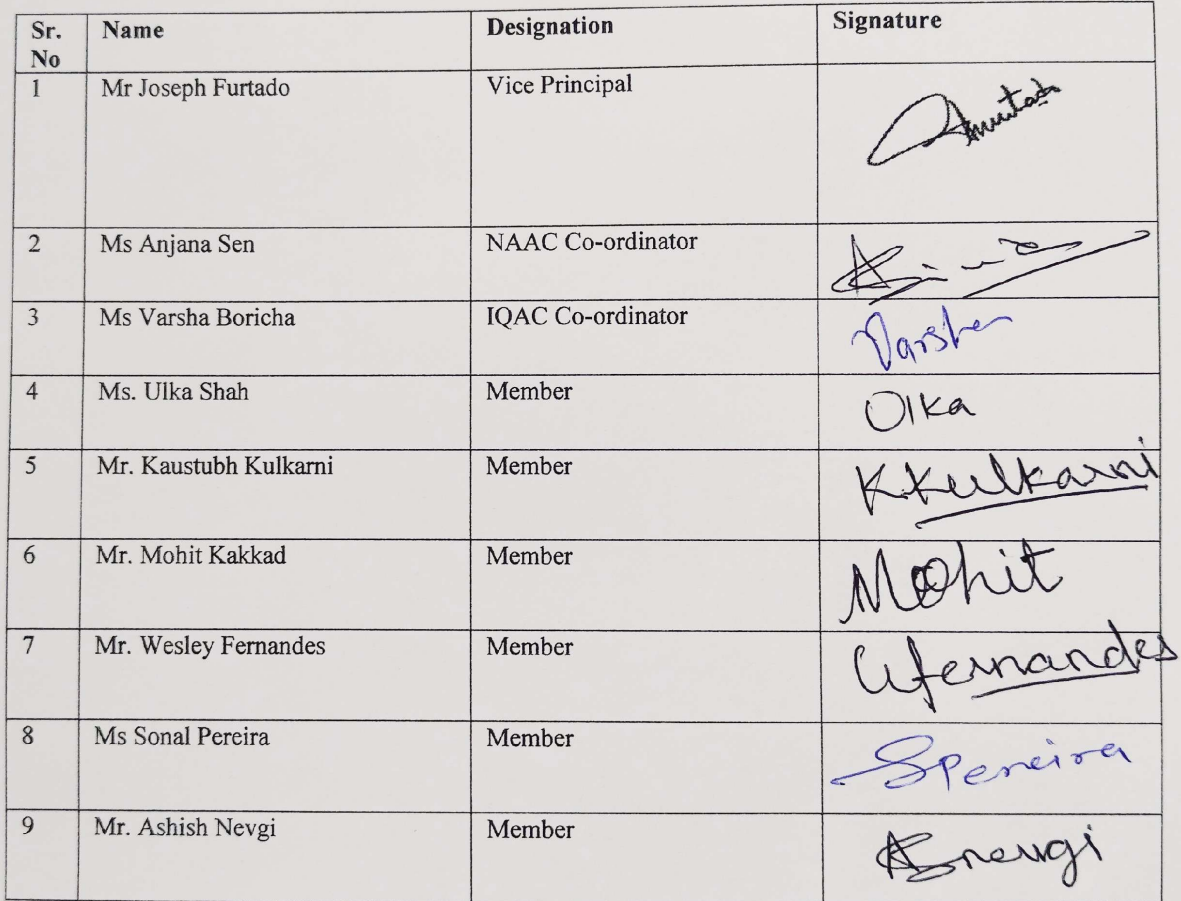 Sr. No Name Designation Signature
1 Mr Joseph Furtado Vice Principal
2 Ms Anjana Sen NAAC Co-ordinator
3 Ms Varsha Boricha IQAC Co-ordinator Varsha
4 Ms. Ulka Shah Member Ulka
5 Mr. Kaustubh Kulkarni Member KKulkarni
6 Mr. Mohit Kakkad Member Mohit
7 Mr. Wesley Fernandes Member Wfernandes
8 Ms Sonal Pereira Member SPereira
9 Mr. Ashish Nevgi Member